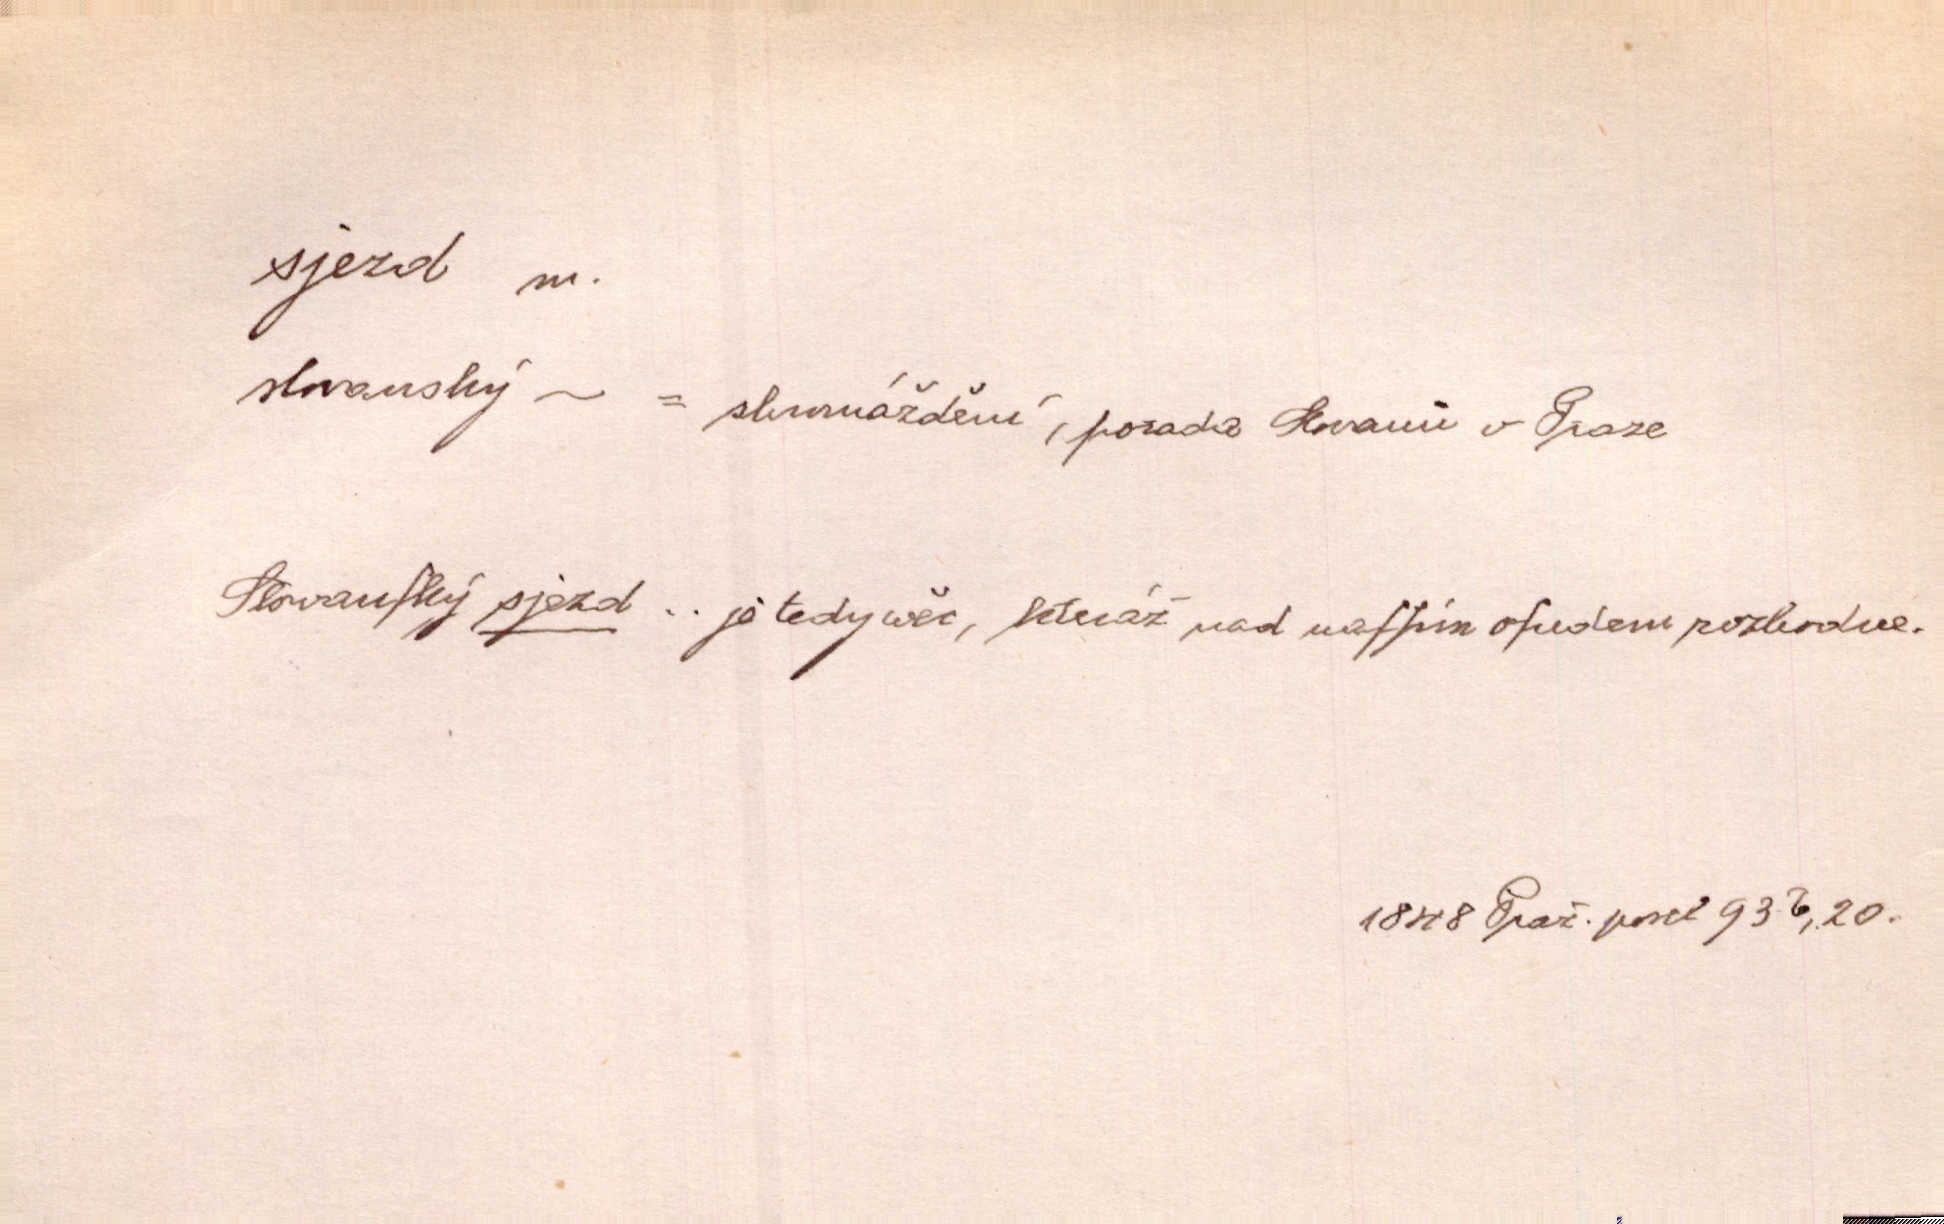 sjezd m.
slovanský ~ = shromáždění, porada Slovanů v Praze
Slovanſký sjezd .. jè tedy wěc, kteráž nad naſſím oſudem rozhodne.
1848 Praž. posel 93b, 20.